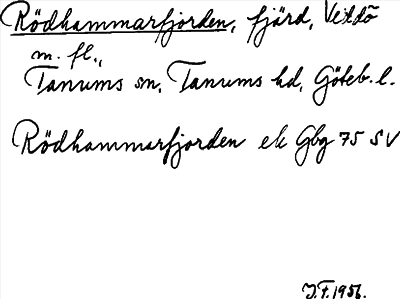 Rödhammarfjorden, fjärd, Veddö
m. fl.,
Tanums sn, Tanums hd, Göteb. l.
Rödhammarfjorden ek Gbg 75 SV
J.F. 1956.